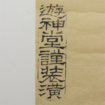 遊神堂謹装潢